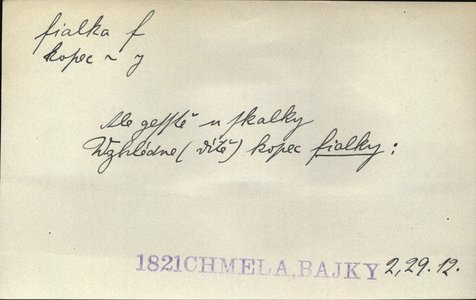 fialka f
kopec ~ y
Ale gesstě u skalky
Wzhlédne (dítě) kopec fialky:
1821 CHMELA, BAJKY 2,29.12.